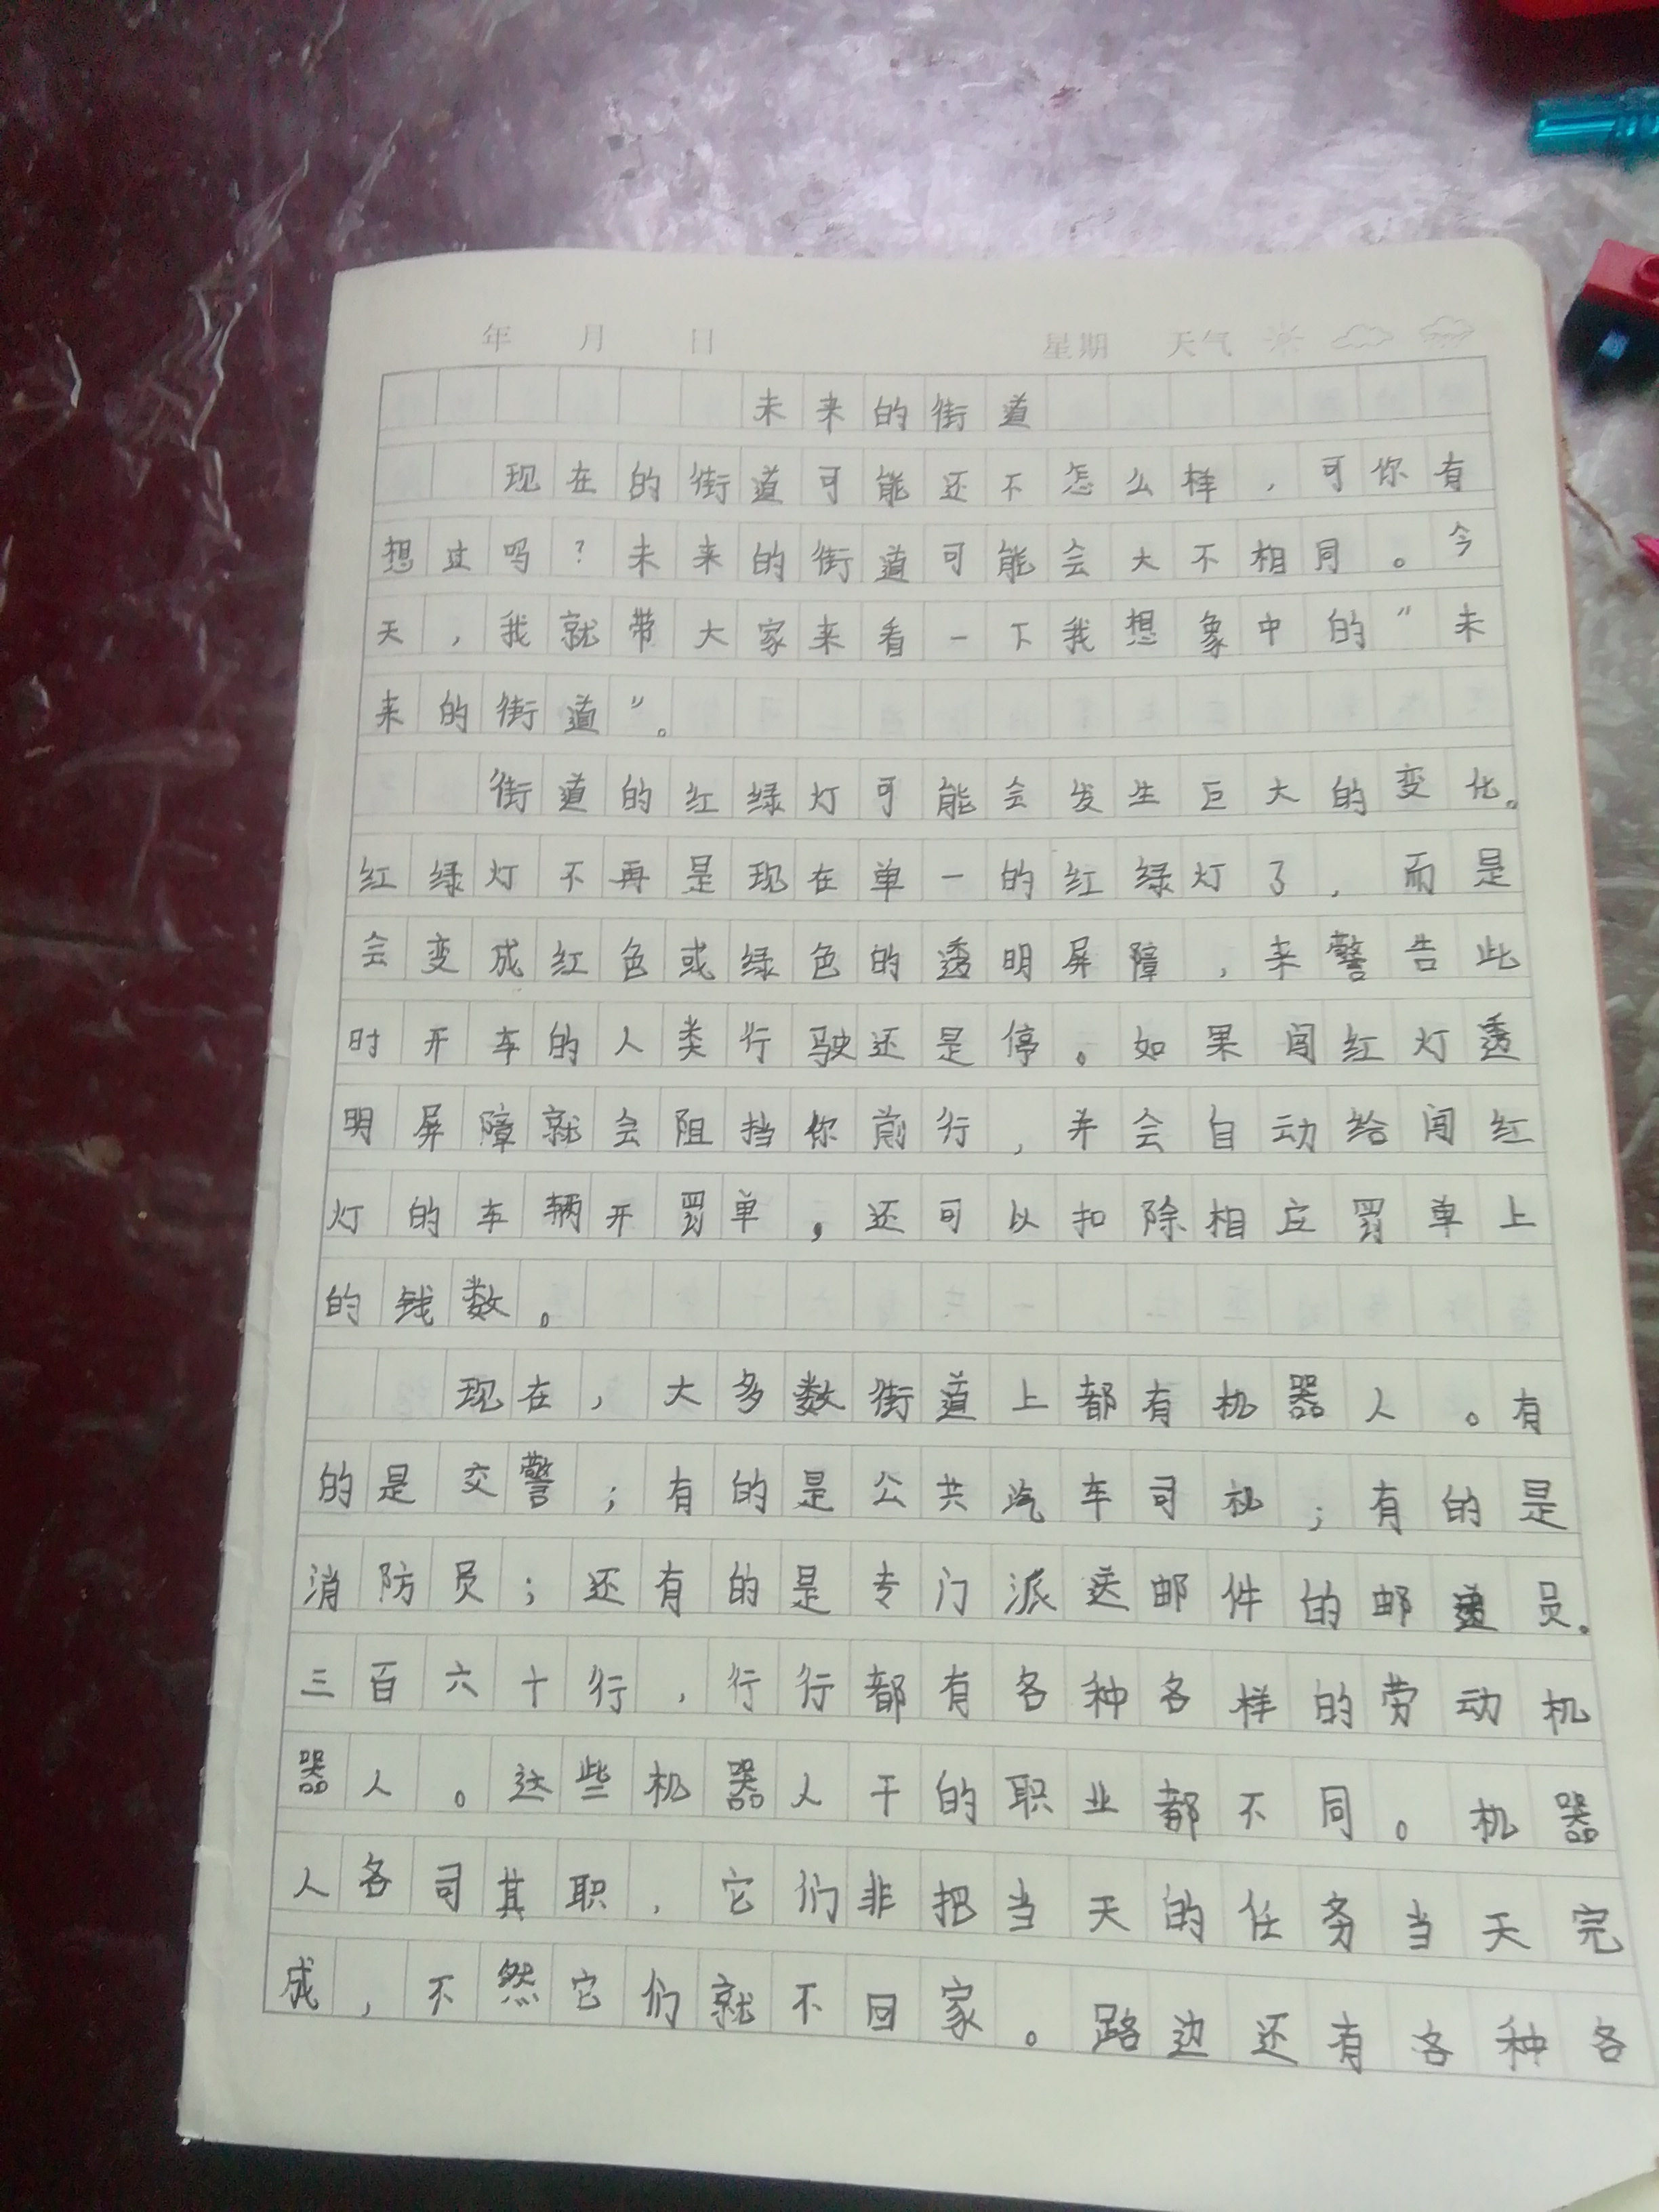 年 月 日 星期 天气
未来的街道
现在的街道可能还不怎么样，可你有
想过吗？未来的街道可能会大不相同。今
天，我就带大家来看一下我想象中的“未
来的街道”。
街道的红绿灯可能会发生巨大的变化。
红绿灯不再是现在单一的红绿灯了，而是
会变成红色或绿色的透明屏障，来警告此
时开车的人类行驶还是停。如果闯红灯透
明屏障就会阻挡你前行，并会自动给闯红
灯的车辆开罚单，还可以扣除相应罚单上
的钱数。
现在，大多数街道上都有机器人。有
的是交警；有的是公共汽车司机；有的是
消防员；还有的是专门派送邮件的邮递员。
三百六十行，行行都有各种各样的劳动机
器人。这些机器人干的职业都不同。机器
人各司其职，它们非把当天的任务当天完
成，不然它们就不回家。路边还有各种各